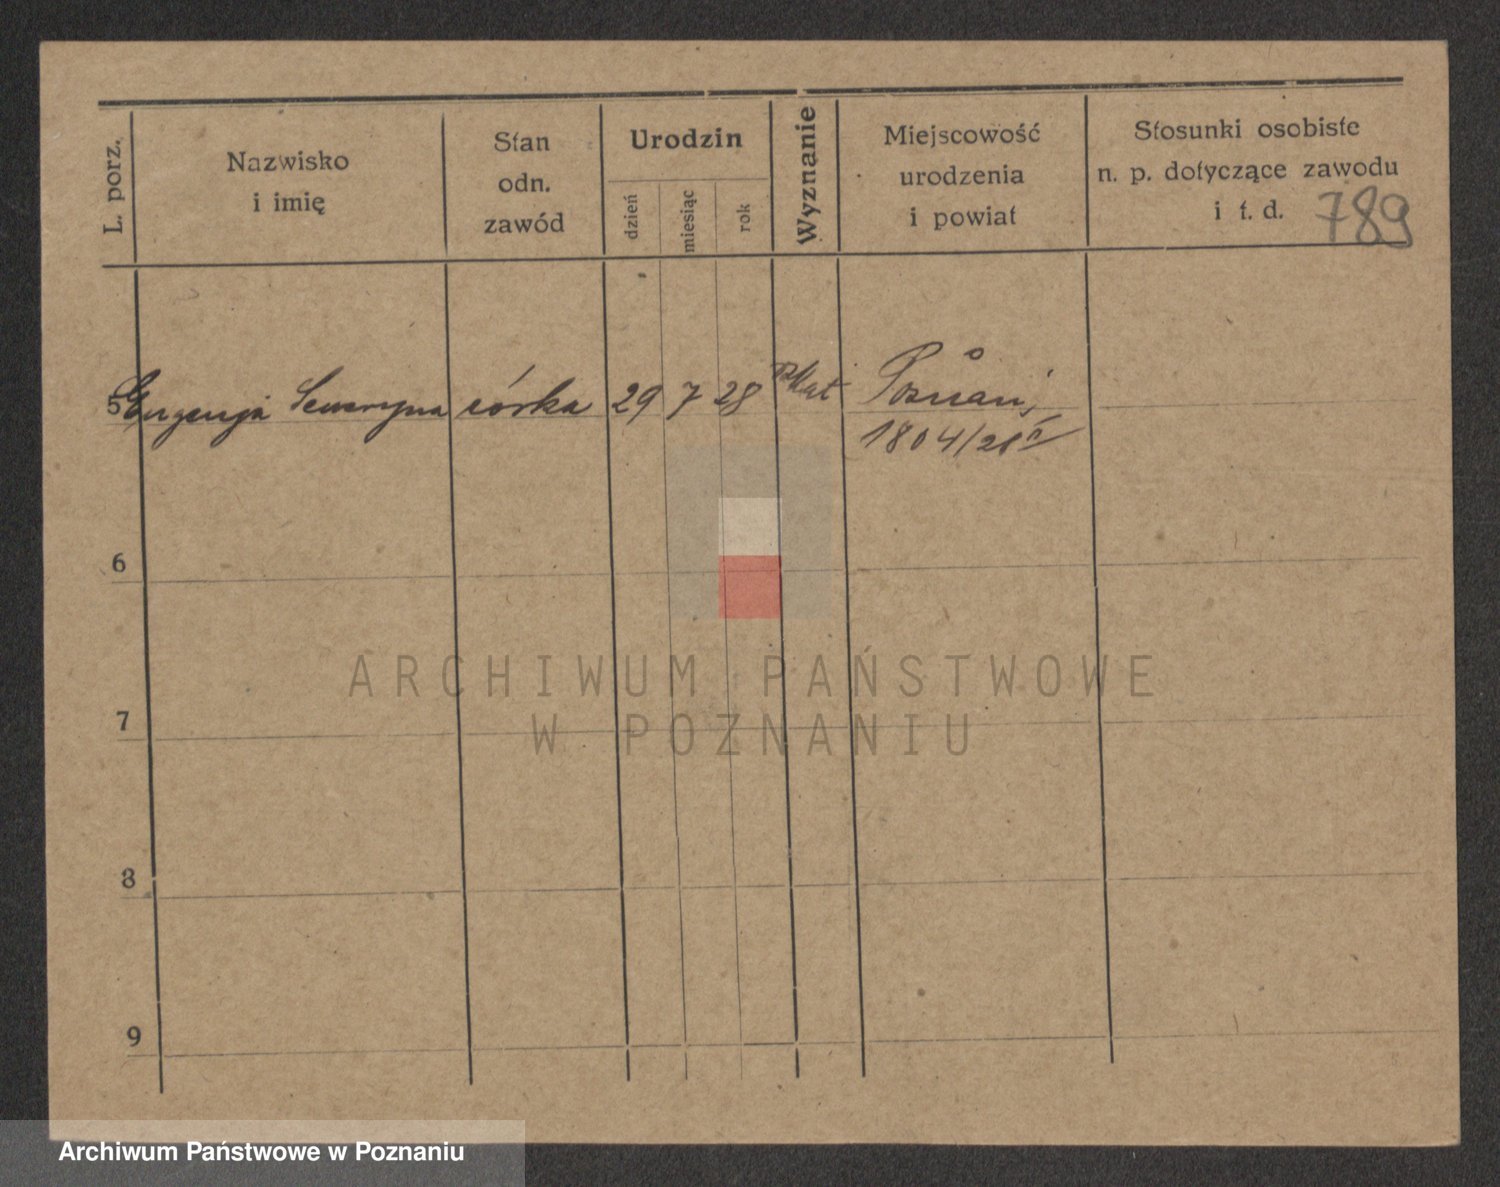 L. porz.
Nazwisko
i imię
Stan
odn.
zawód
Urodzin
dzień
miesiąc
rok
Wyznanie
Miejscowość
urodzenia
i powiat
Stosunki osobiste
n. p. dotyczące zawodu
i t. d.
789
5 Eugenja Seweryna córka 29 7 28 Rzkat Poznań,
1804/28
6
7
8
9
ARCHIWUM PAŃSTWOWE
W POZNANIU
Archiwum Państwowe w Poznaniu